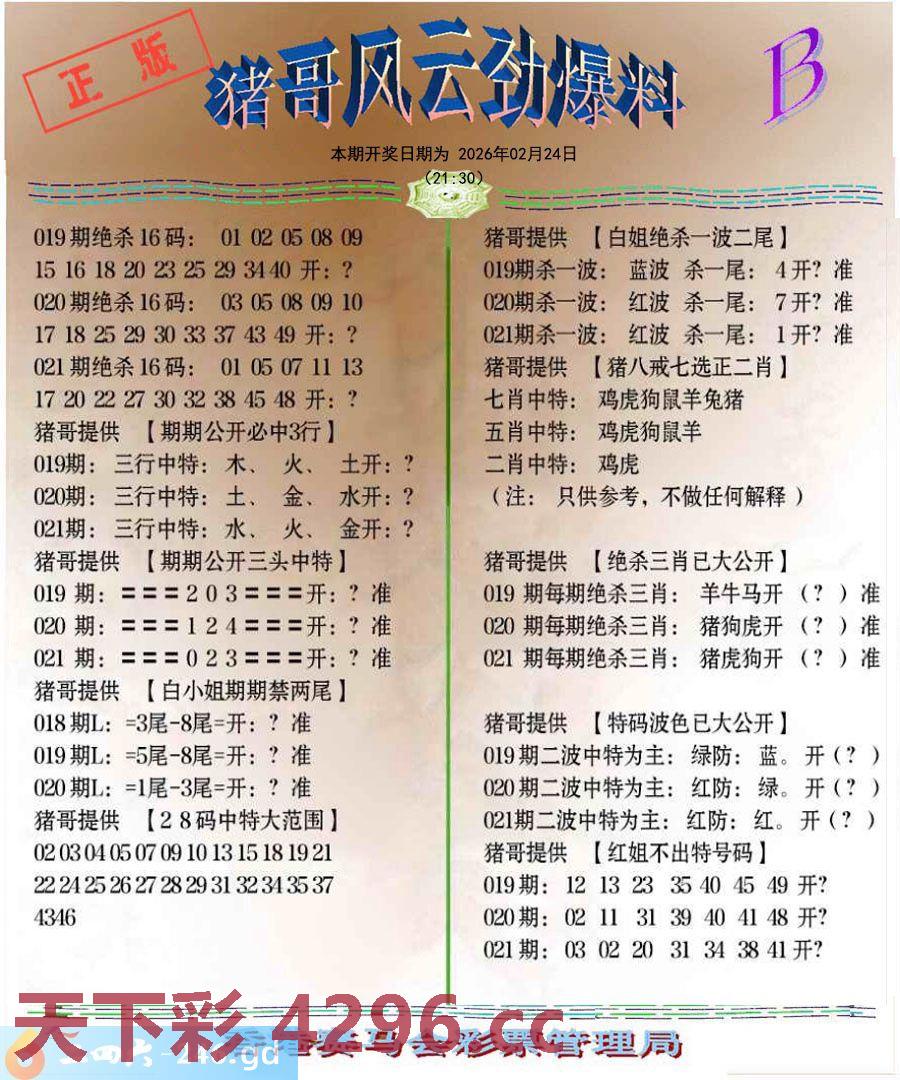 正版
猪哥风云劲爆料
B
本期开奖日期为 2026年02月24日
(21:30)
019期绝杀16码： 01 02 05 08 09
15 16 18 20 23 25 29 34 40 开：?
020期绝杀16码： 03 05 08 09 10
17 18 25 29 30 33 37 43 49 开：?
021期绝杀16码： 01 05 07 11 13
17 20 22 27 30 32 38 45 48 开：?
猪哥提供 【期期公开必中3行】
019期：三行中特：木、 火、 土开：?
020期：三行中特：土、 金、 水开：?
021期：三行中特：水、 火、 金开：?
猪哥提供 【期期公开三头中特】
019 期：===2 0 3===开：? 准
020 期：===1 2 4===开：? 准
021 期：===0 2 3===开：? 准
猪哥提供 【白小姐期期禁两尾】
018期L：=3尾-8尾=开：? 准
019期L：=5尾-8尾=开：? 准
020期L：=1尾-3尾=开：? 准
猪哥提供 【28码中特大范围】
02 03 04 05 07 09 10 13 15 18 19 21
22 24 25 26 27 28 29 31 32 34 35 37
43 46
猪哥提供 【白姐绝杀一波二尾】
019期杀一波： 蓝波 杀一尾： 4开? 准
020期杀一波： 红波 杀一尾： 7开? 准
021期杀一波： 红波 杀一尾： 1开? 准
猪哥提供 【猪八戒七选正二肖】
七肖中特： 鸡虎狗鼠羊兔猪
五肖中特： 鸡虎狗鼠羊
二肖中特： 鸡虎
（注： 只供参考，不做任何解释 ）
猪哥提供 【绝杀三肖已大公开】
019 期每期绝杀三肖： 羊牛马开 （? ）准
020 期每期绝杀三肖： 猪狗虎开 （? ）准
021 期每期绝杀三肖： 猪虎狗开 （? ）准
猪哥提供 【特码波色已大公开】
019期二波中特为主： 绿防： 蓝。 开（? ）
020期二波中特为主： 红防： 绿。 开（? ）
021期二波中特为主： 红防： 红。 开（? ）
猪哥提供 【红姐不出特号码】
019期： 12 13 23 35 40 45 49 开?
020期： 02 11 31 39 40 41 48 开?
021期： 03 02 20 31 34 38 41 开?
天下彩 4296.cc
马会彩票管理局